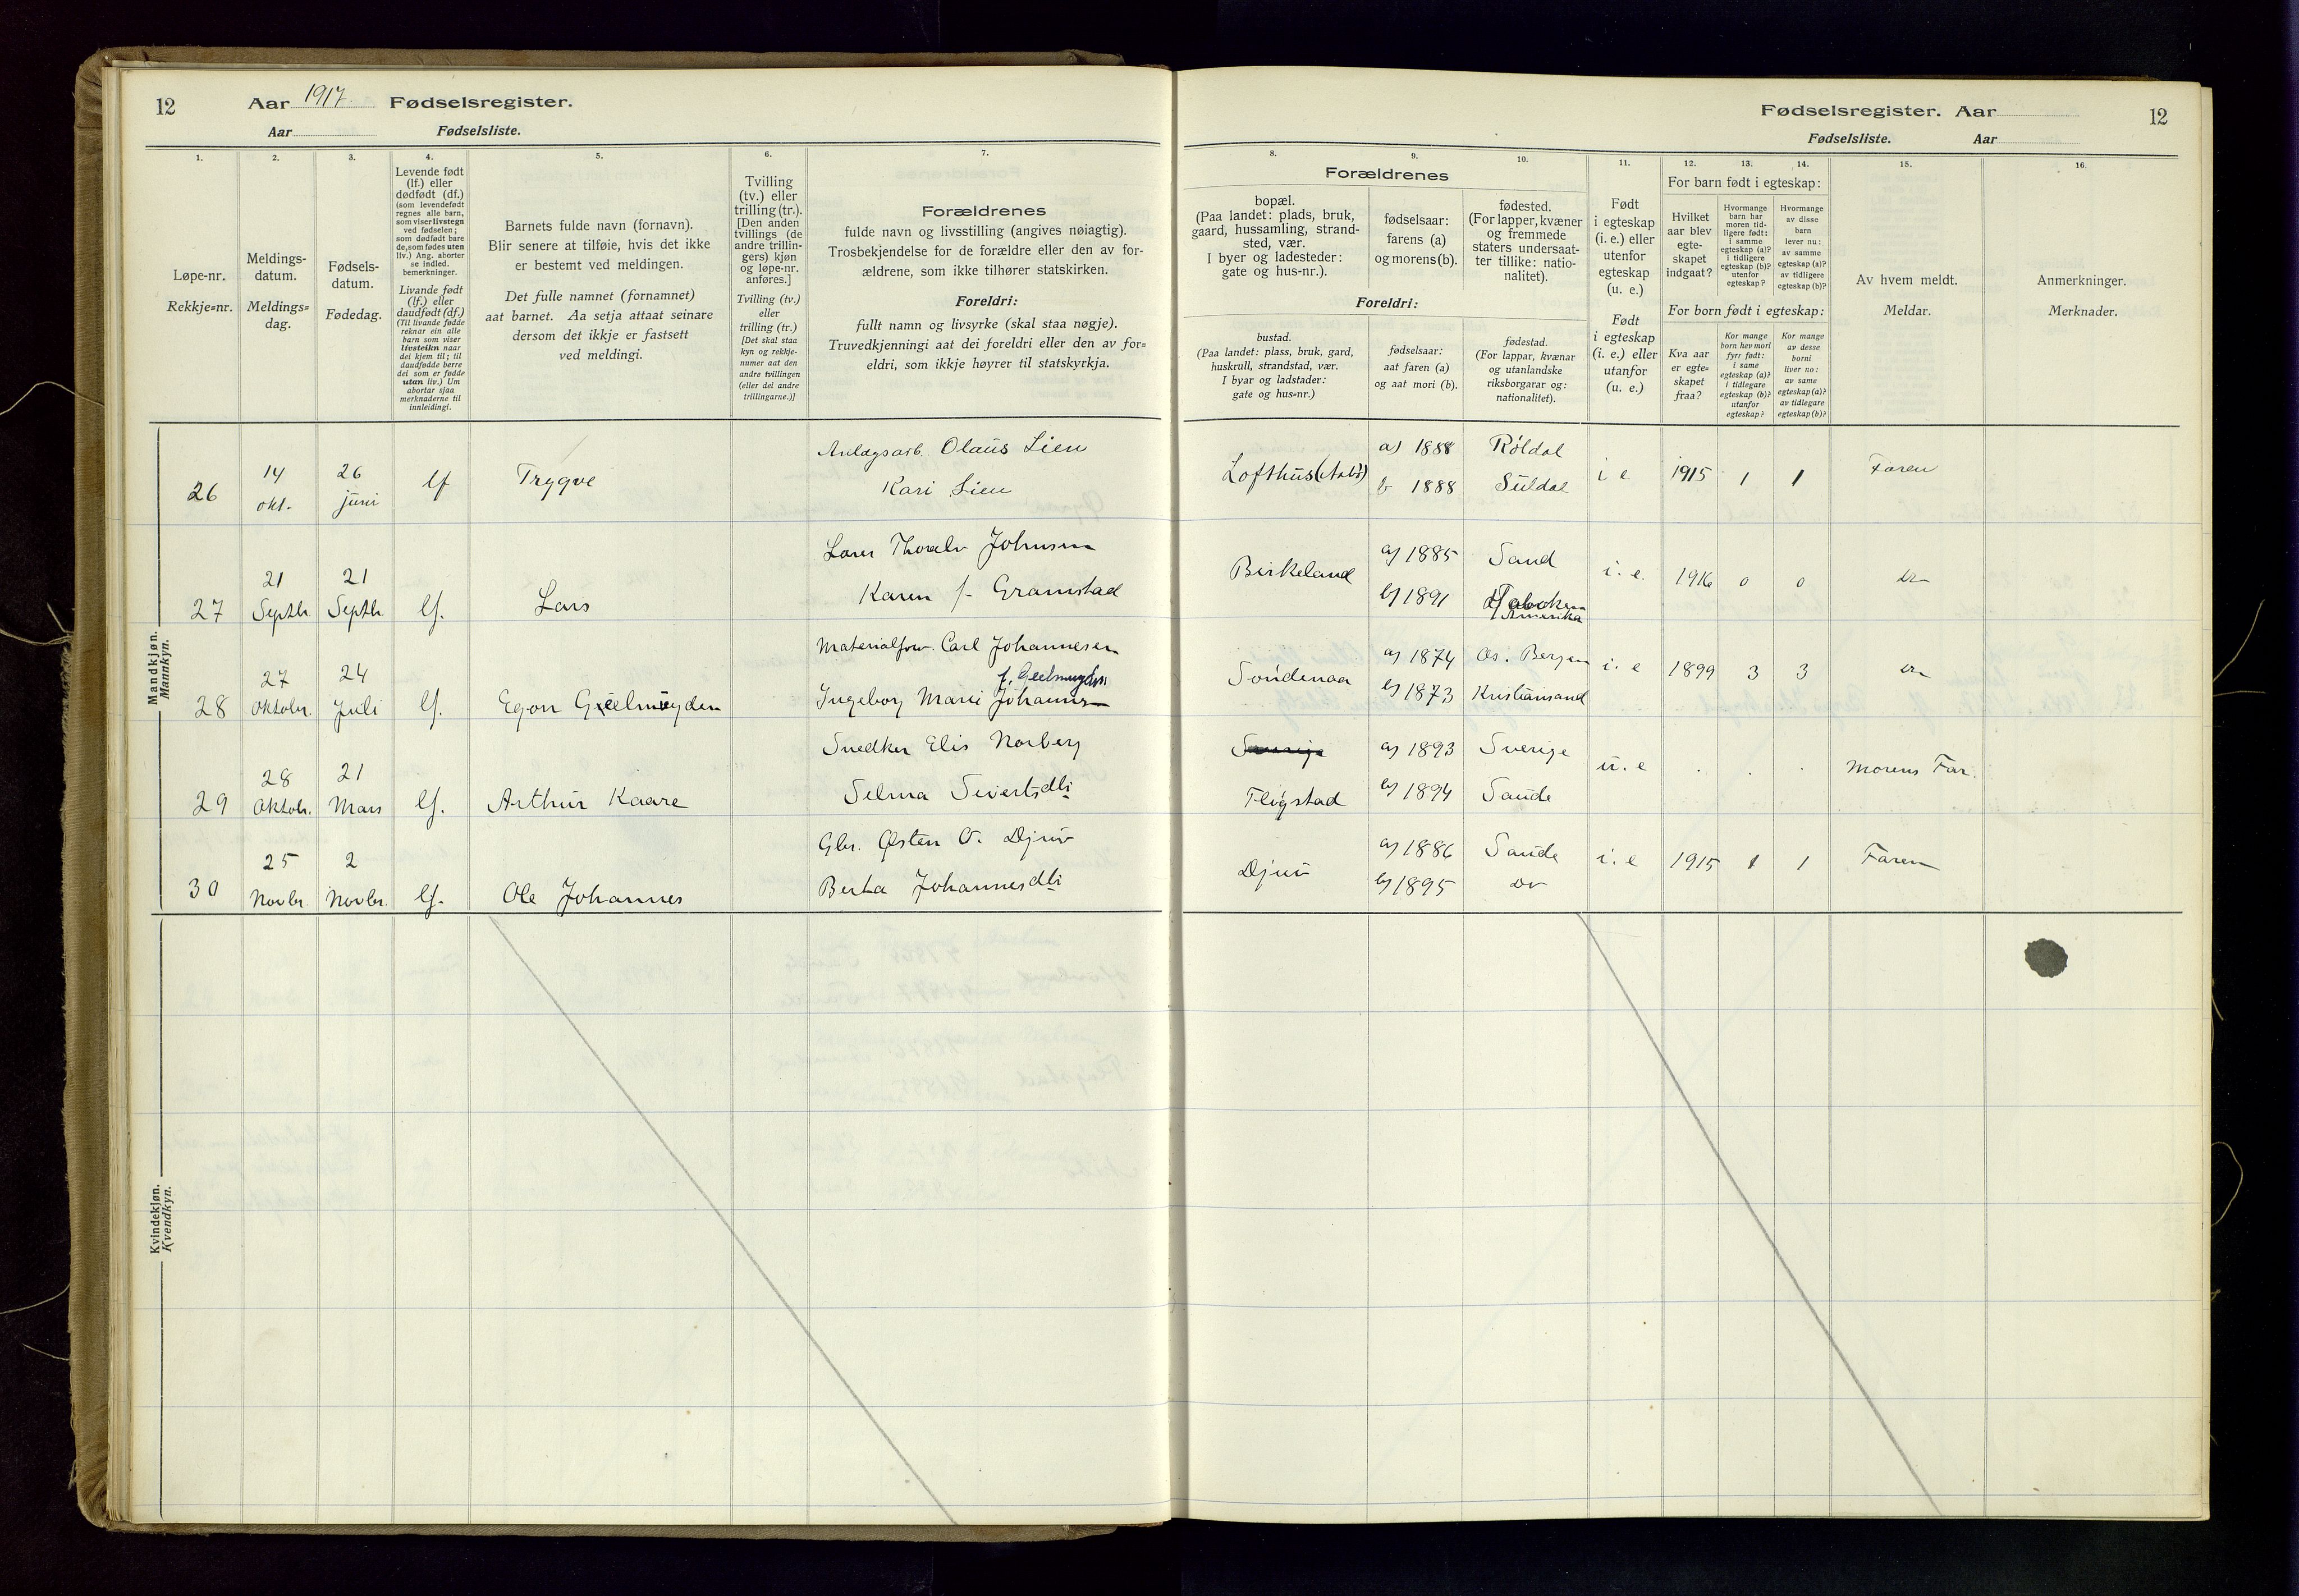 12
Aar 1917. Fødselsregister.
Aar Fødselsliste.
1.
2.
3.
4.
5.
6.
7.
Løpe-nr.
Rekkje=nr.
Meldings-
datum.
Meldings=
dag.
Fødsels-
datum.
Fødedag.
Levende født
(lf.) eller
dødfødt (df.)
(som levendefødt
regnes alle barn,
som viser livstegn
ved fødselen;
som dødfødt bare
de, som fødes uten
liv.) Ang. aborter
se indled.
bemerkninger.
Livande født
(lf.) eller
daudfødt (df.)
(Til livande fødde
reknar ein alle
barn som viser
livsteikn naar
dei kjem til; til
daudfødde berre
dei som er fødde
utan liv.) Um
abortar sjaa
merknaderne til
innleidingi.
Barnets fulde navn (fornavn).
Blir senere at tilføie, hvis det ikke
er bestemt ved meldingen.
Det fulle namnet (fornamnet)
aat barnet. Aa setja attaat seinare
dersom det ikkje er fastsett
ved meldingi.
Tvilling
(tv.) eller
trilling (tr.).
[Den anden
tvillings (de
andre trillin-
gers) kjøn
og løpe-nr.
anføres.]
Tvilling (tv.)
eller
trilling (tr.)
[Det skal staa
kyn og rekkje-
numer aat den
andre tvillingen
(eller dei andre
trillingarne.)]
Forældrenes
fulde navn og livsstilling (angives nøiagtig).
Trosbekjendelse for de forældre eller den av for-
ældrene, som ikke tilhører statskirken.
Foreldri:
fullt namn og livsyrke (skal staa nøgje).
Truvedkjenningi aat dei foreldri eller den av for=
eldri, som ikkje høyrer til statskyrkja.
Mandkjøn.
Mannkyn.
26
14
okt.
26
juni
lf
Trygve
Anlægsarb. Olaus Lien
Kari Lien
27
21
Septbr.
21
Septbr.
lf.
Lars
Lars Thoralv Johnsen
Karen f. Gramstad
28
27
Oktober.
24
Juli
lf.
Egon Geelmuyden
Materialforv. Carl Johannesen
f. Geelmuyden
Ingeborg Marie Johannesen
29
28
Oktobr.
21
Mars
lf.
Arthur Kaare
Snedker Elis Norberg
Selma Sivertsdtr
30
25
Novbr.
2
Novbr.
lf.
Ole Johannes
Gbr. Østen O. Djuv
Berta Johannesdtr
Kvindekjøn.
Kvendkyn.
Fødselsregister. Aar 12
Fødselsliste. Aar
8.
9.
10.
11.
12.
13.
14.
15.
16.
Forældrenes
bopæl.
(Paa landet: plads, bruk,
gaard, hussamling, strand-
sted, vær.
I byer og ladesteder:
gate og hus-nr.).
fødselsaar:
farens (a)
og morens (b).
fødested.
(For lapper, kvæner
og fremmede
staters undersaat-
ter tillike: natio-
nalitet).
Foreldri:
bustad.
(Paa landet: plass, bruk, gard,
huskrull, strandstad, vær.
I byar og ladstader:
gate og hus=nr.)
fødselsaar:
aat faren (a)
og aat mori (b).
fødestad.
(For lappar, kvænar
og utanlandske
riksborgarar og:
nationalitet).
Født
i egteskap
(i. e.) eller
utenfor
egteskap
(u. e.)
Født
i egteskap
(i. e.) eller
utanfor
(u. e.)
For barn født i egteskap:
Hvilket
aar blev
egte-
skapet
indgaat?
Hvormange
barn har
moren tid-
ligere født:
i samme
egteskap (a)?
i tidligere
egteskap (b)?
utenfor
egteskap?
Hvormange
av disse
barn
lever nu:
av samme
egteskap (a)?
av tidligere
egteskap (b)?
For born født i egteskap:
Kva aar
er egte=
skapet
fraa?
Kor mange
born hev mori
fyrr født:
i same
egteskap (a)?
i tidlegare
egteskap (b)?
utanfor
egteskap?
Kor mange
av desse
borni
liver no:
av same
egteskap (a)?
av tidlegare
egteskap (b)?
Av hvem meldt.
Meldar.
Anmerkninger.
Merknader.
Lofthus
a) 1888
b 1888
Røldal
Suldal
i e
1915
1
1
Faren
Birkeland
a) 1885
b) 1891
Sand
Hoboken
Amerika
i. e.
1916
0
0
Søndenaa
a) 1874
b) 1873
Os. Bergen
Kristiansand
i. e
1899
3
3
Fligstad
a) 1893
b) 1894
Sverige
Saude
u. e
Morens Far.
Djuv
a) 1886
b) 1895
Saude
i. e
1915
1
1
Faren